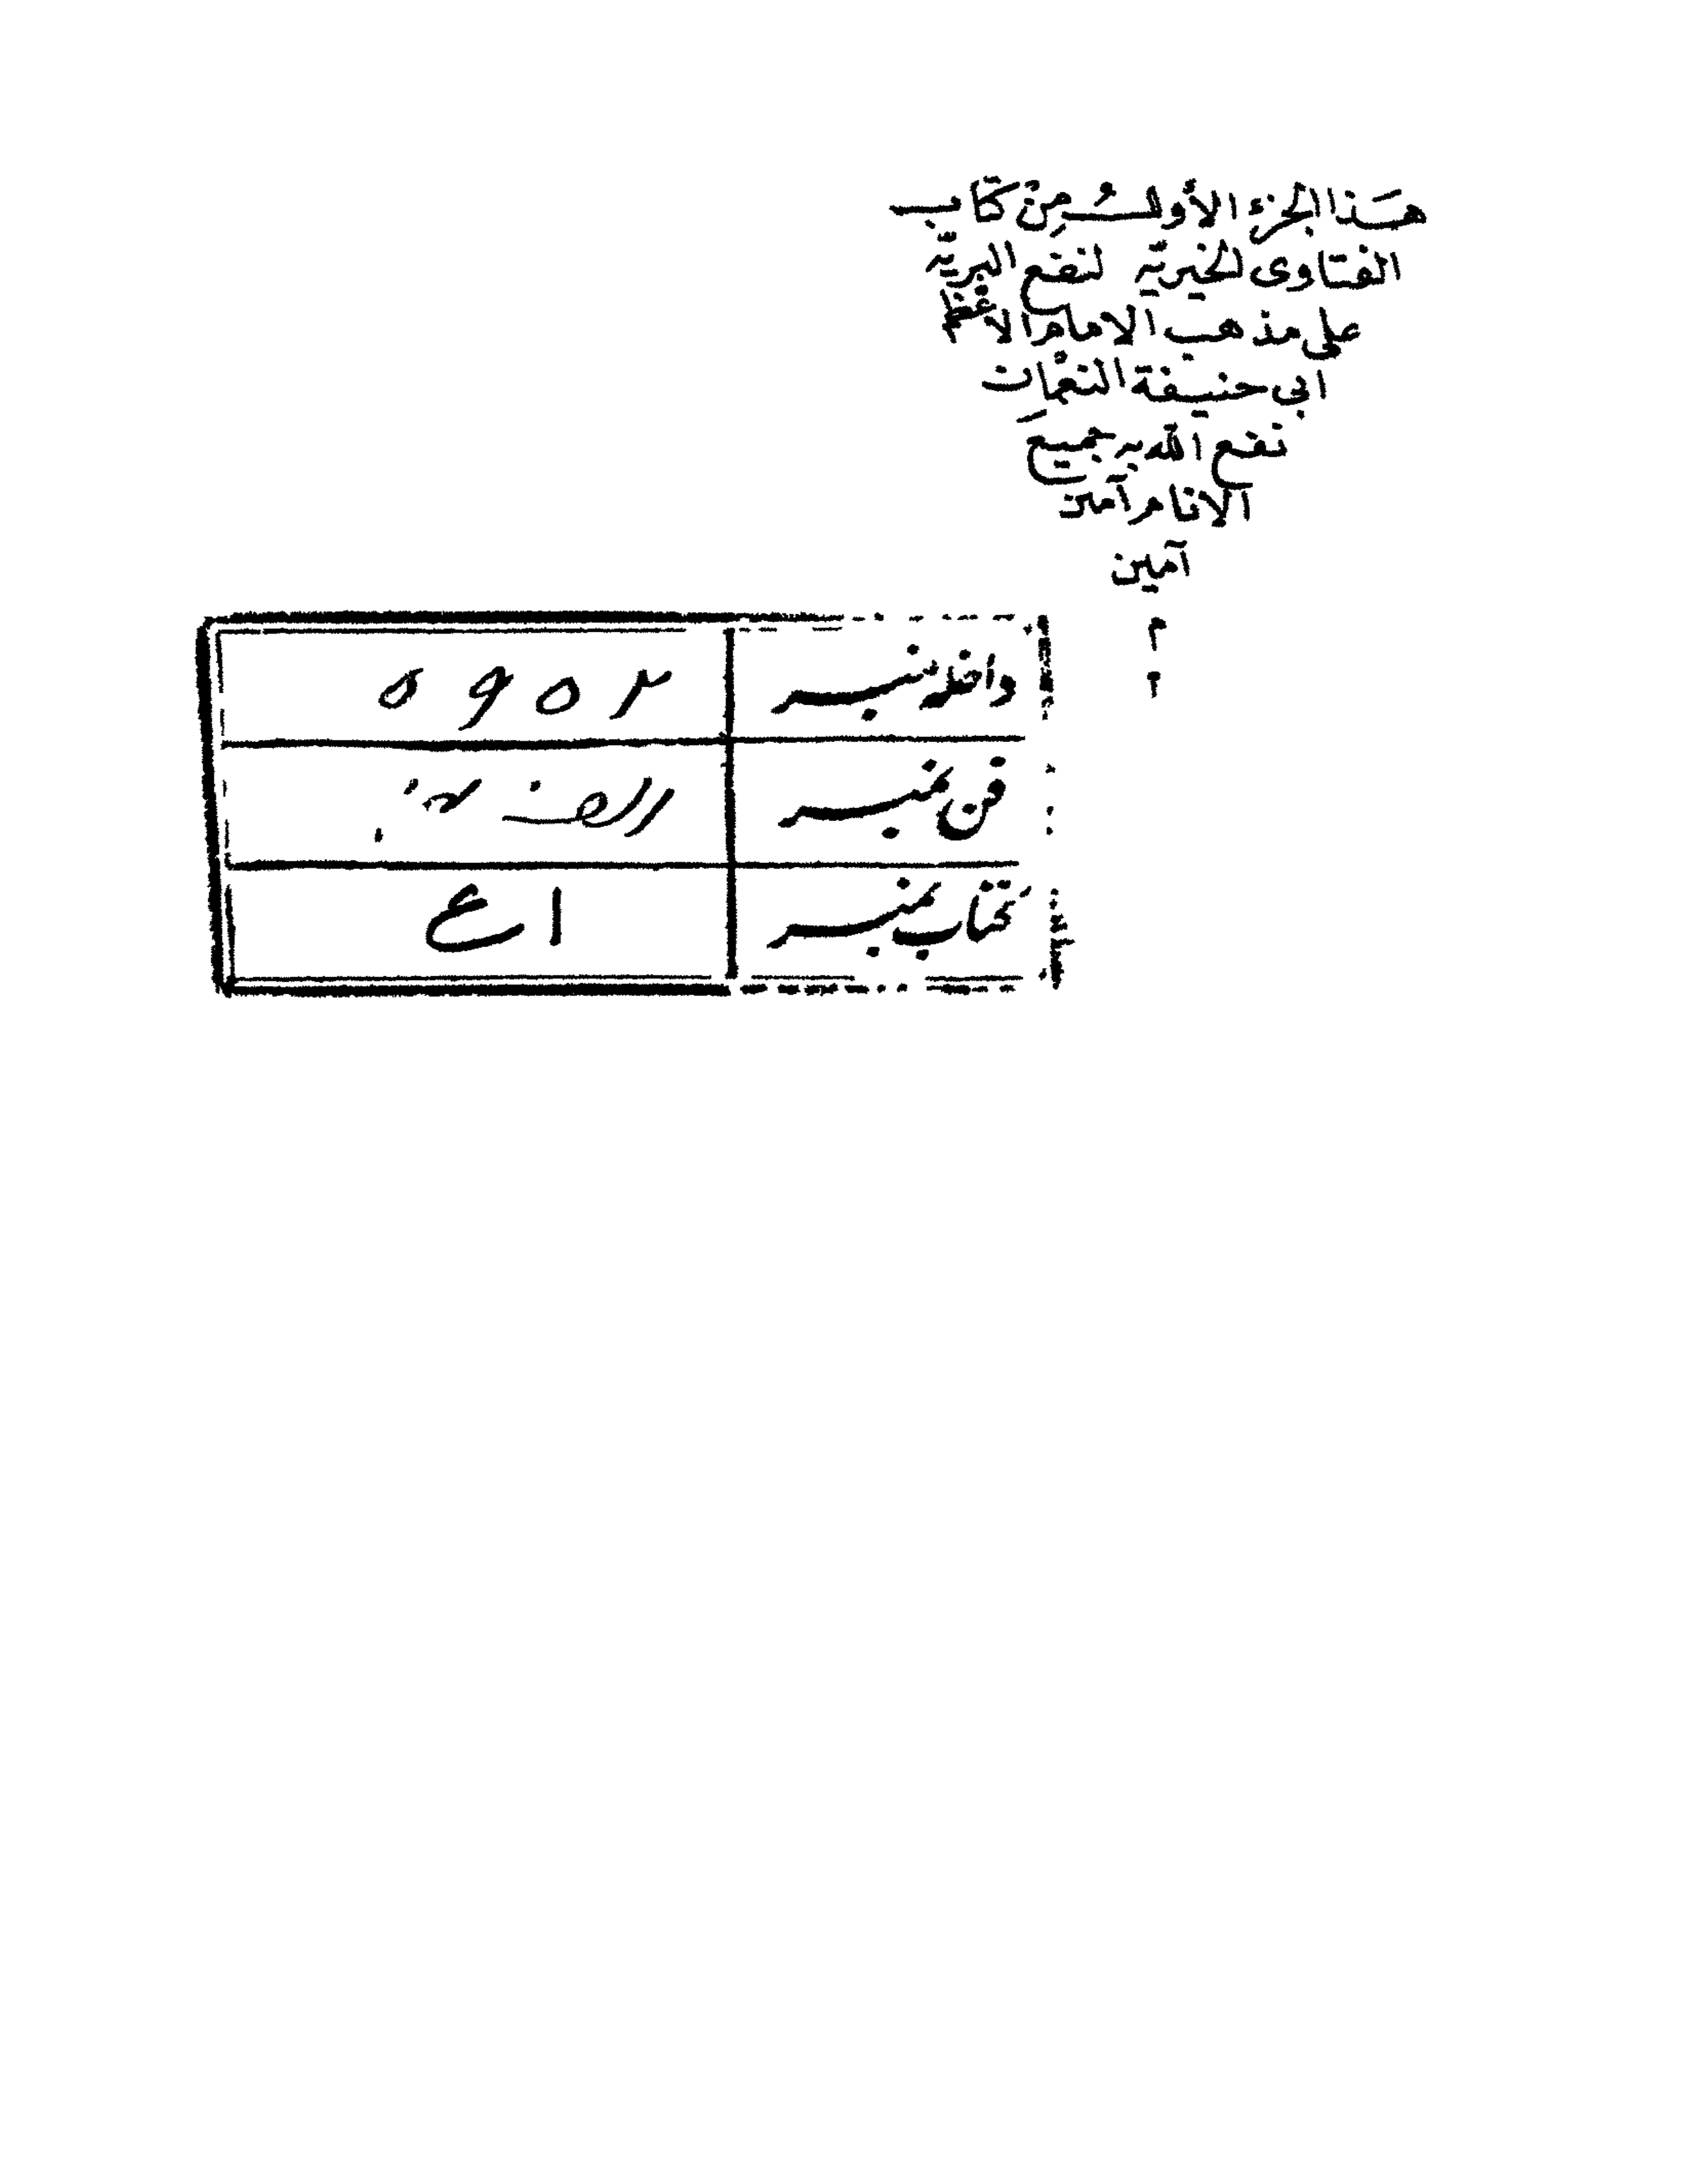 هَذا الجزء الأولُ مِنْ كتاب
الفتاوى الخيريّه لنفع البريّه
على مذهب الامام الاعْظم
ابى حنيفة النعْمانِ
نفع الله به جميع
الانام آمين
آمين
م
م
داخله نمبر ۲ ۵ ۹ ۵
فن نمبر
كتاب نمبر ا ع